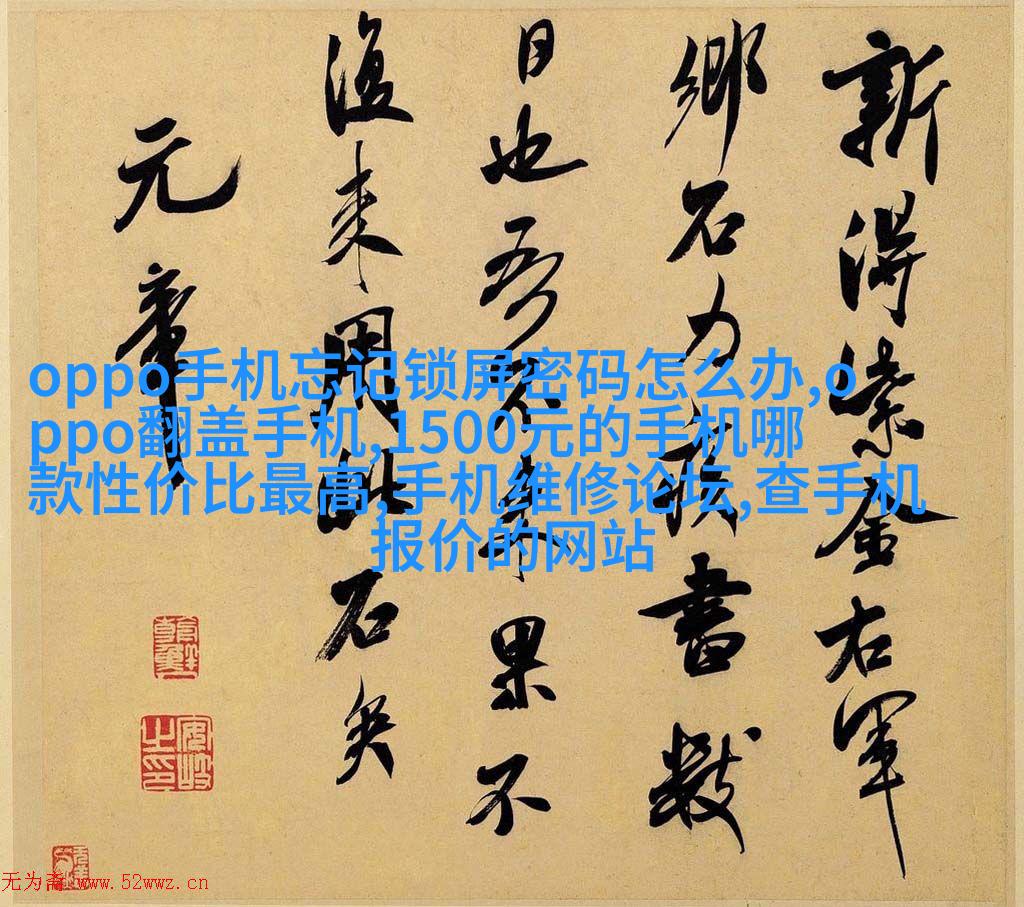 新得紫金右軍
鄉石力疾書數
日也吾不來果不
復来用此石矣
元章
oppo手机忘记锁屏密码怎么办,o
ppo翻盖手机,1500元的手机哪
款性价比最高,手机维修论坛,查手机
报价的网站
无为斋 www.52wwz.cn